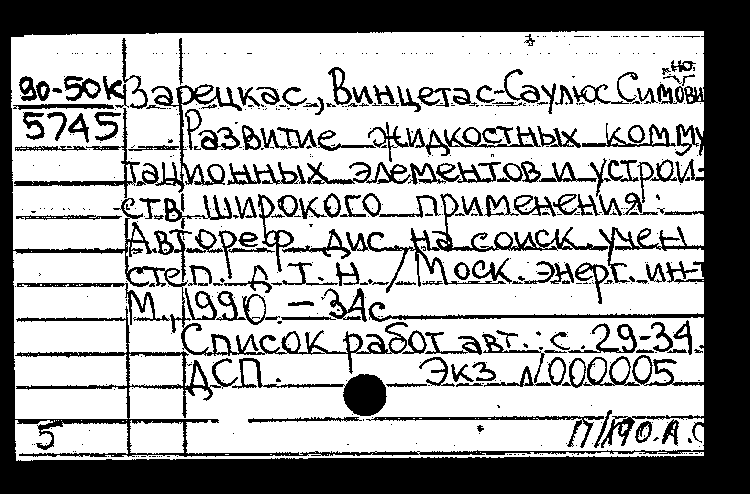 90-50к Зарецкас, Винцетас-Саулюс Симонови
5745 Развитие жидкостных комму
тационных элементов и устрой-
ств широкого применения:
Автореф. дис. на соиск. учен
степ. д.т.н. / Моск. энерг. ин-т
М., 1990. – 34с
Список работ авт.: с. 29-34.
ДСП. Экз №000005
5 17/190.А.С